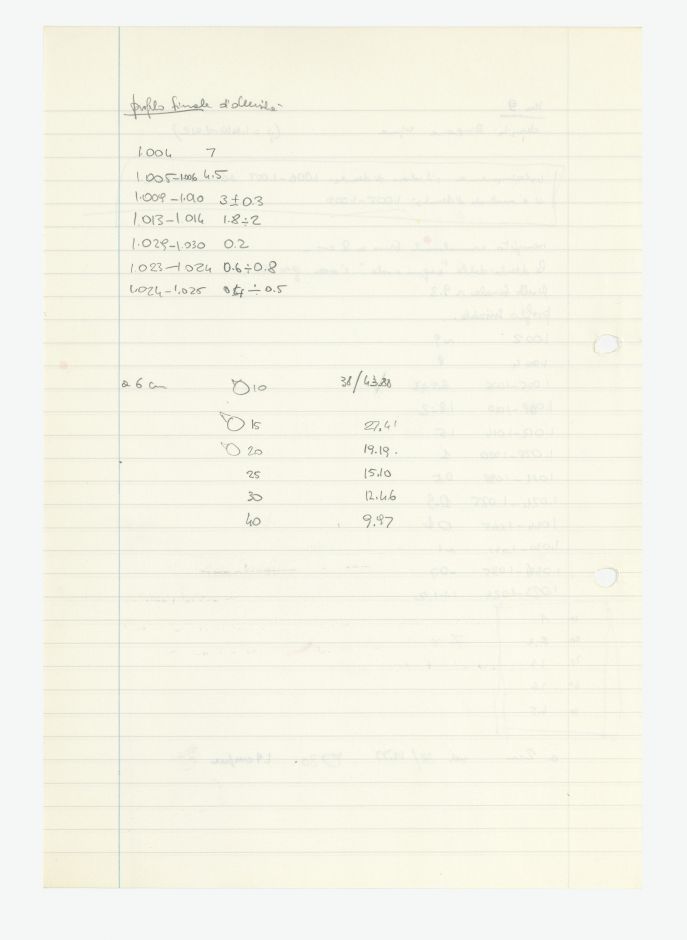 profilo finale d'densità
1.004 7
1.005-1.006 4.5
1.009-1.010 3±0.3
1.013-1.014 1.8÷2
1.029-1.030 0.2
1.023-1.024 0.6÷0.8
1.024-1.025 ÷ 0.5
a 6 cm 10 38/43.88
15 27.41
20 19.19.
25 15.10
30 12.46
40 9.97